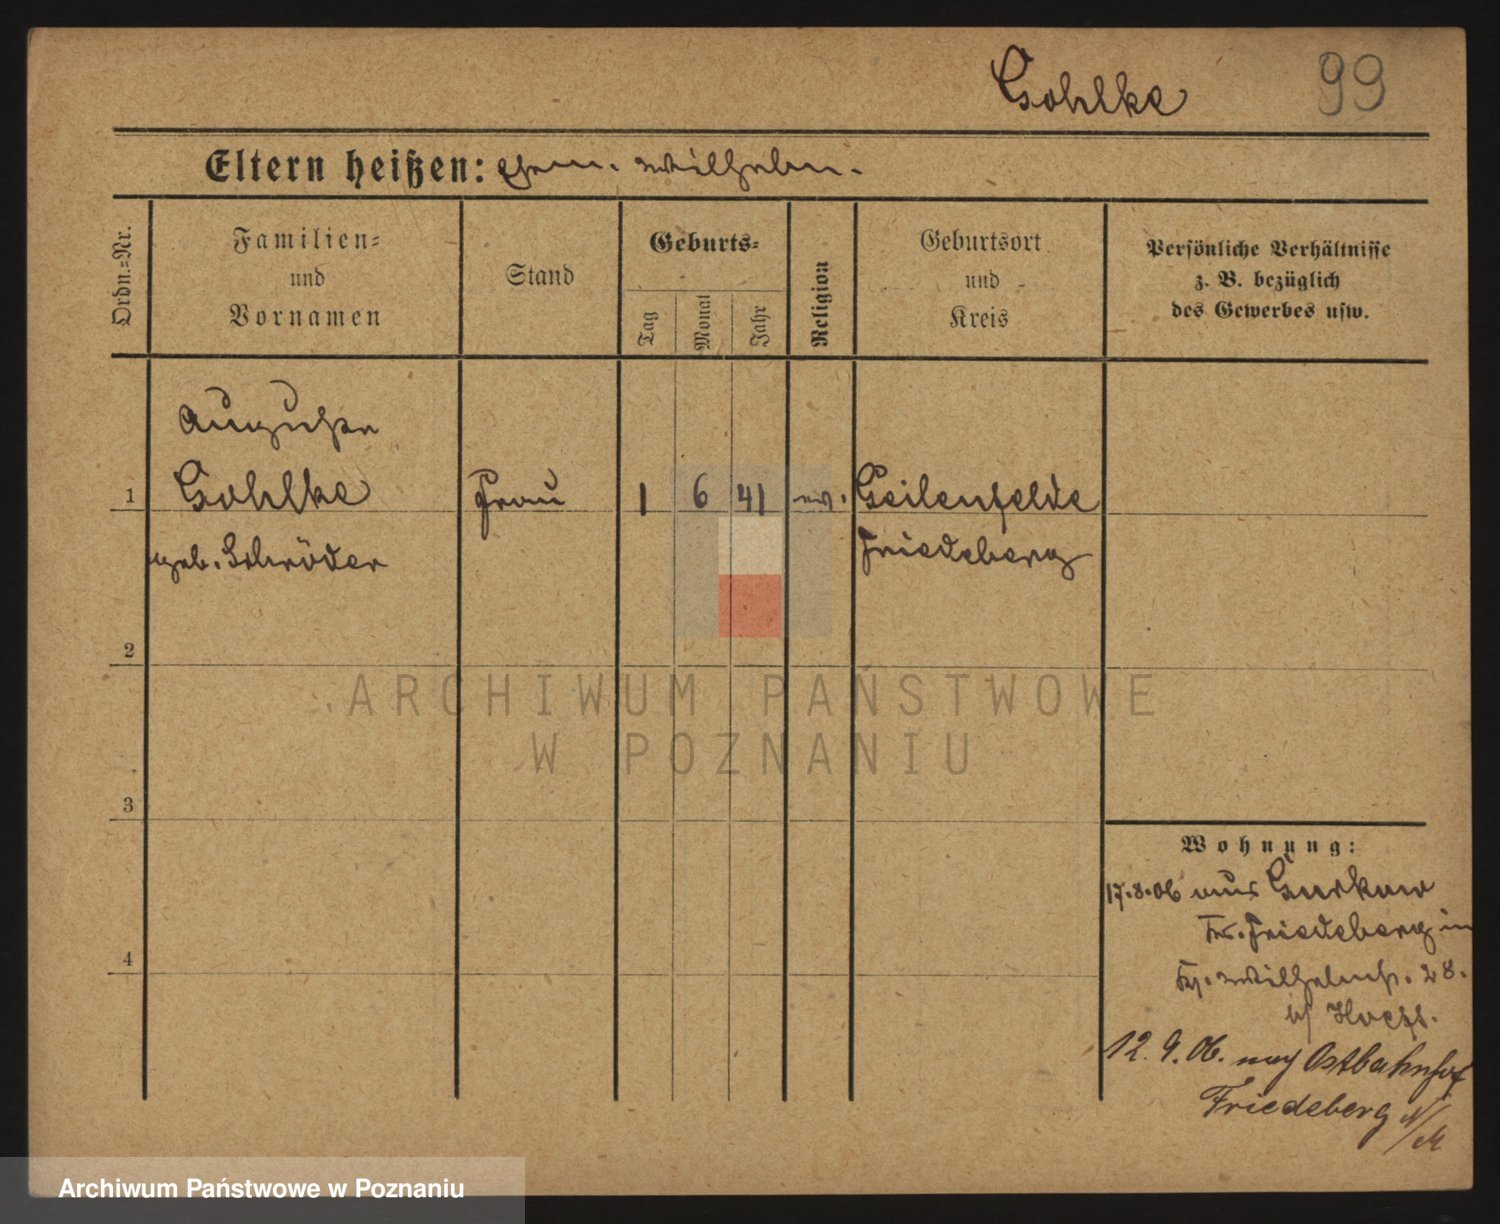 Gohlke 99
Eltern heißen: Ehem. Wilhelm.
Ordn.-Nr.
Familien-
und
Vornamen
Stand
Geburts-
Tag
Monat
Jahr
Religion
Geburtsort
und
Kreis
Persönliche Verhältnisse
z. B. bezüglich
des Gewerbes usw.
Auguste
1 Gohlke Frau 1 6 41 ev. Geilenfelde
geb. Schröder Friedeberg
2
3
4
Wohnung:
17.8.06 aus Gurkow
Kr. Friedeberg in
Wilhelmstr. 28.
b/
12. 9. 06. nach Ostbahnhof
Friedeberg N/M
ARCHIWUM PAŃSTWOWE
W POZNANIU
Archiwum Państwowe w Poznaniu